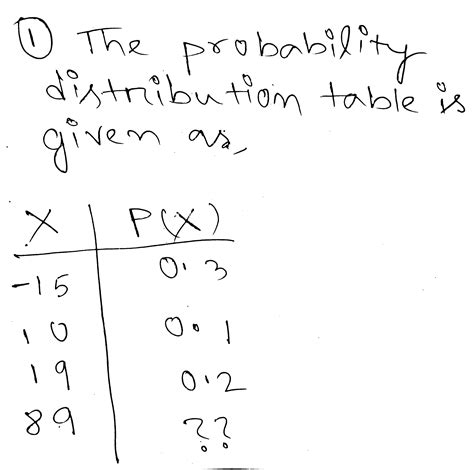 ① The probability
distribution table is
given as,
X P(X)
-15 0.3
10 0.1
19 0.2
89 ??